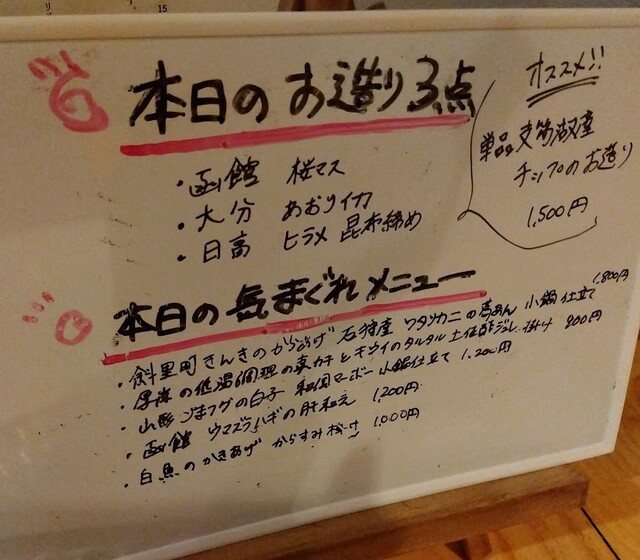 本日のお造り3点
・函館 桜マス
・大分 あおりイカ
・日高 ヒラメ 昆布締め
オススメ!!
単品 支笏湖産
チップのお造り
1,500円
本日の気まぐれメニュー
・斜里町きんきのからあげ 石狩産 ワタリガニの葛あん 小鍋仕立て 1,800円
・厚岸の低温調理の真カキとキウイのタルタル 土佐酢ジュレ掛け 900円
・山形 ごまフグの白子 和風マーボー小鍋仕立て 1,200円
・函館 ウマズラハギの肝和え 1200円
・白魚のかきあげ からすみ掛け 1,000円
15